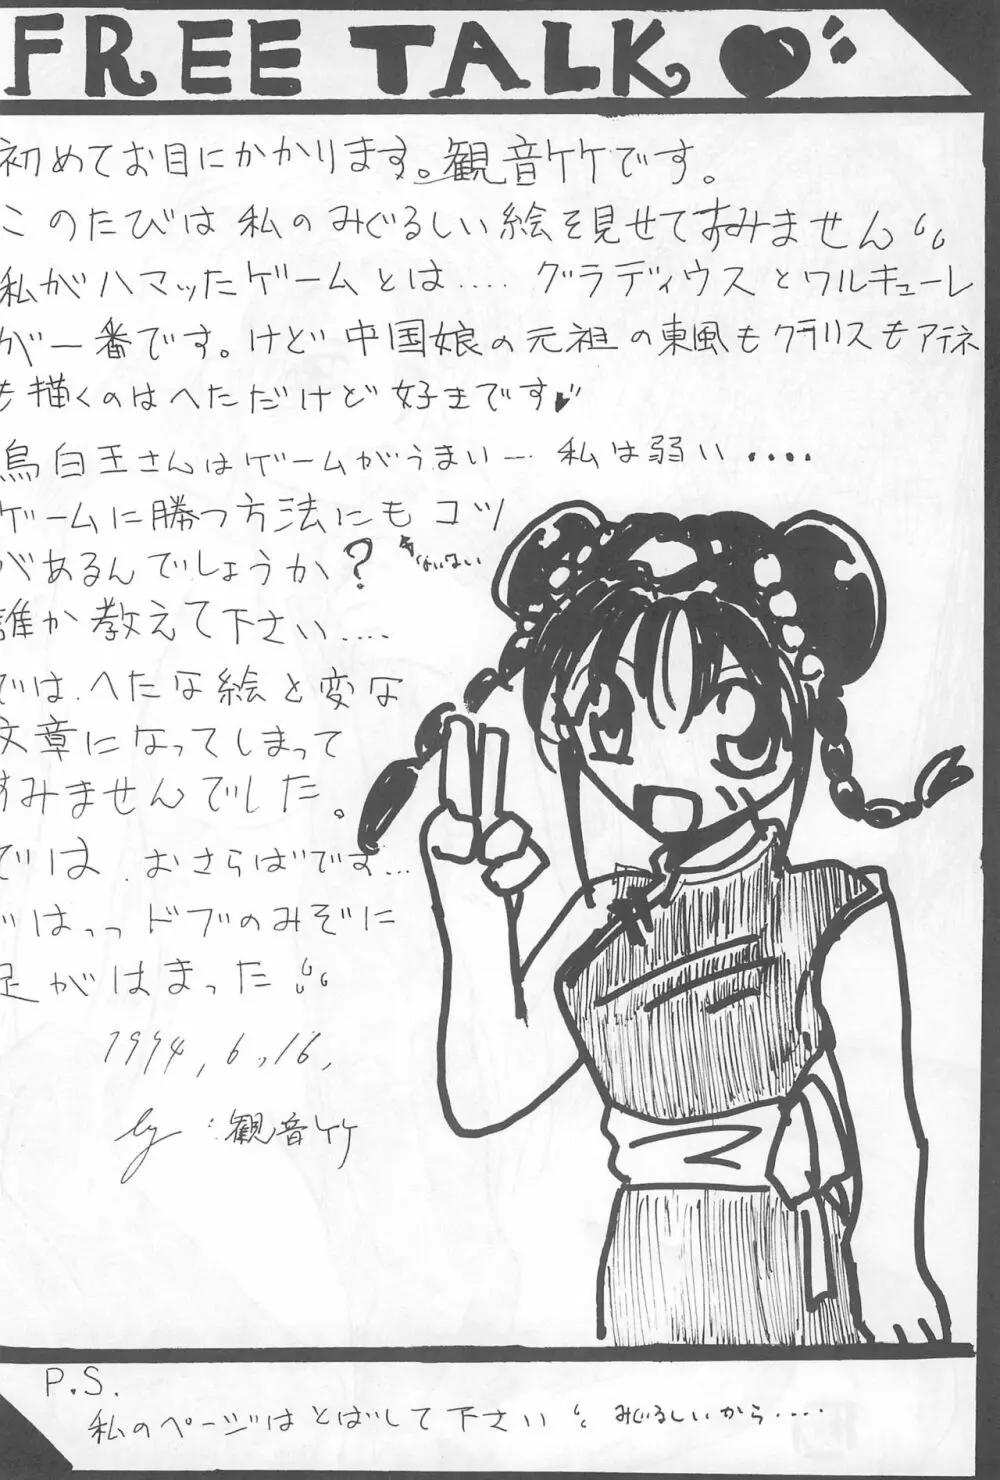 FREE TALK
初めてお目にかかります。観音竹です。
このたびは私のみぐるしい絵を見せてすみません
私がハマッたゲームとは.... グラディウスとワルキューレ
が一番です。けど中国娘の元祖の東風もクラリスもアテネ
も描くのはへただけど好きです
鳥白王さんはゲームがうまいー 私は弱い....
ゲームに勝つ方法にもコツ
があるんでしょうか?
ないない
誰か教えて下さい....
では、へたな絵と変な
文章になってしまって
すみませんでした。
では、おさらばです...
ではっっドブのみぞに
足がはまった
1994,6,16,
by:観音竹
P.S.
私のページはとばして下さい みぐるしいから....